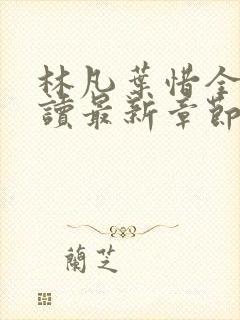 林凡葉惜全
讀最新章節
蘭芝